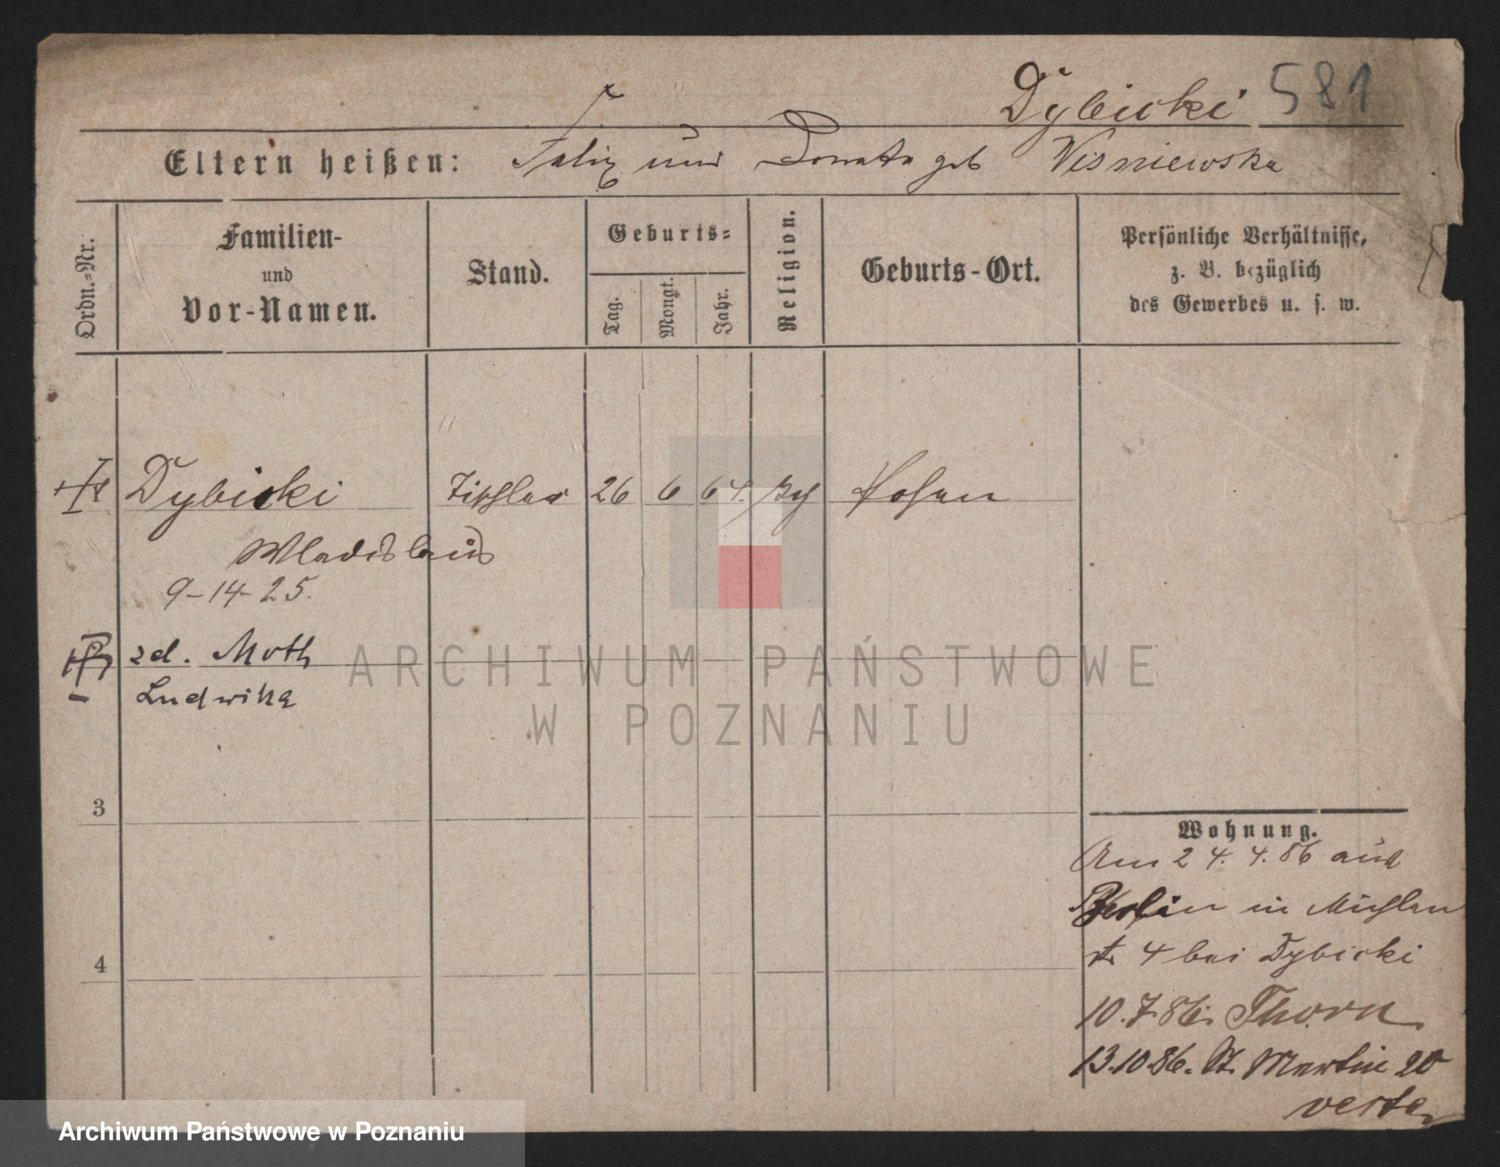 Dybicki 581
Eltern heißen: Felix und Donata geb Wisniewska
Ordn.-Nr.
Familien-
und
Vor-Namen.
Stand.
Geburts-
Tag.
Monat.
Jahr.
Religion.
Geburts-Ort.
Persönliche Verhältnisse,
z. B. bezüglich
des Gewerbes u. s. w.
Dybicki Tischler 26 6 64. Posen
Wladislaus
9-14-25.
zd. Moth
Ludwika
3
4
Wohnung.
Am 24.4.86 aus
Berlin in Mühlen
str 4 bei Dybicki
10.7.86. Thorn
13.10.86. St. Martin 20
verte
ARCHIWUM PAŃSTWOWE
W POZNANIU
Archiwum Państwowe w Poznaniu